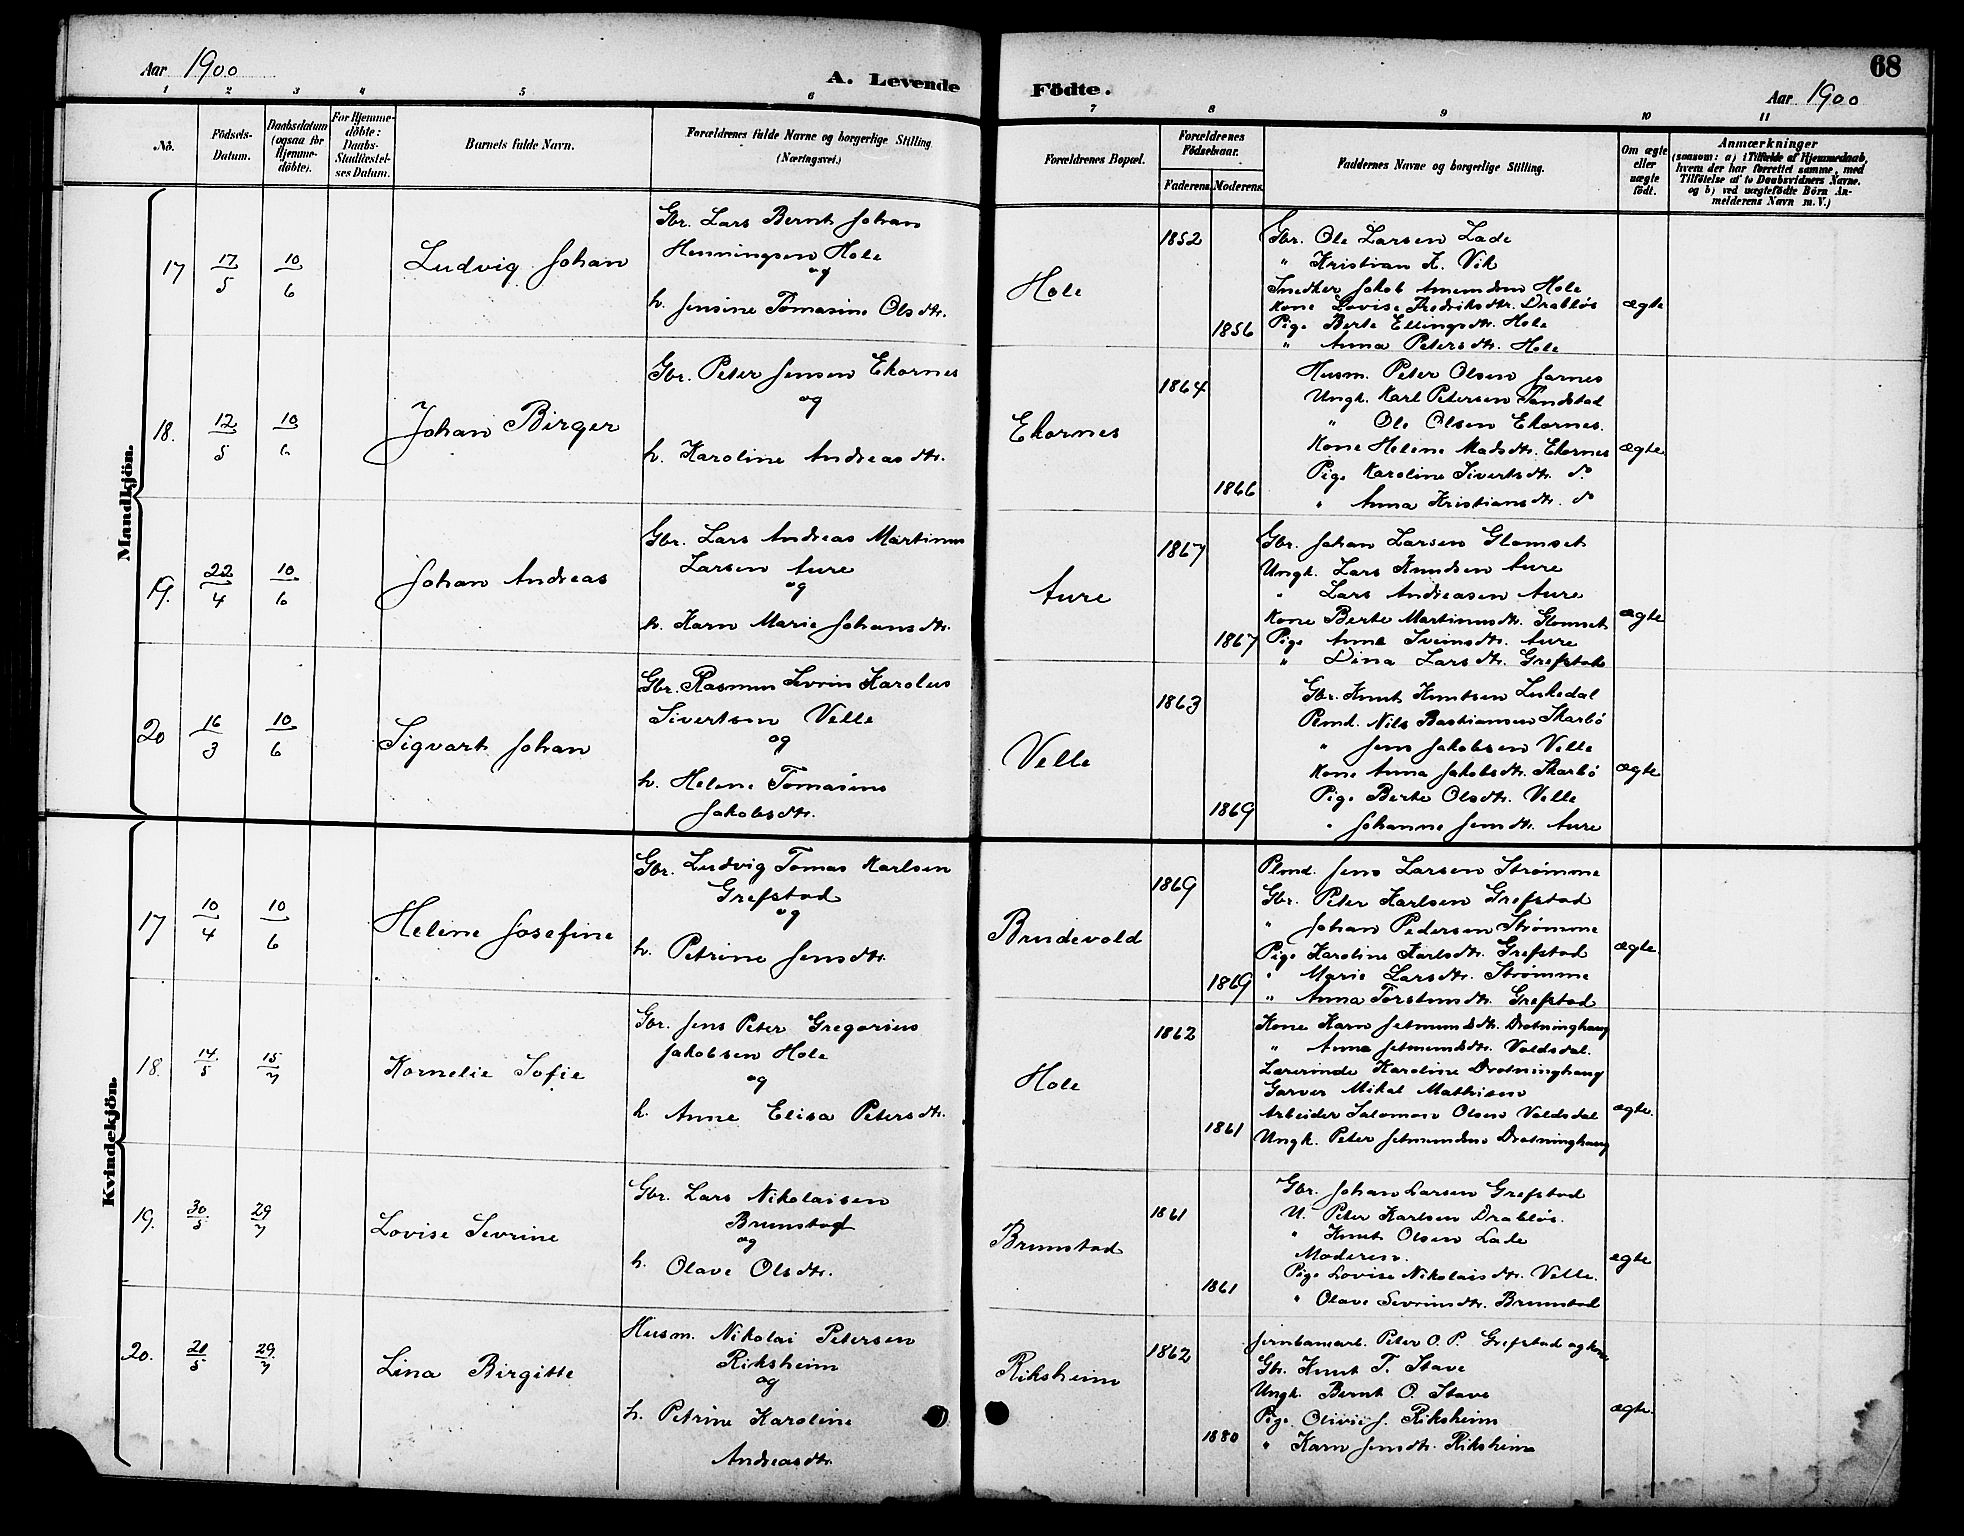 Aar 1900
A. Levende
1 2 3 4 5 6
No.
Födsels-
Datum.
Daabsdatum
(ogsaa for
Hjemme-
döbte).
For Hjemme-
döbte:
Daabs-
Stadfæstel-
ses Datum.
Barnets fulde Navn.
Forældrenes fulde Navne og borgerlige Stilling
(Næringsvei.)
Mandkjön.
17 17/5 10/6 Ludvig Johan
Gbr. Lars Bernt Johan
Henningsen Hole
og
h. Jensine Tomasine Olsdtr.
18. 12/5 10/6 Johan Birger
Gbr. Peter Jensen Ekornes
og
h. Karoline Andreasdtr.
19. 22/4 10/6 Johan Andreas
Gbr. Lars Andreas Martinus
Larsen Aure
og
h. Karn Marie Johansdtr.
20 16/3 10/6 Sigvart Johan
Gbr. Rasmus Sevrin Karolus
Sivertsen Velle
og
h. Helene Tomasine
Jakobsdtr.
Kvindekjön.
17 10/4 10/6 Helene Josefine
Gbr. Ludvig Tomas Karlsen
Grefstad
og
h. Petrine Jensdtr.
18. 14/5 15/7 Kornelie Sofie
Gbr. Jens Peter Gregorius
Jakobsen Hole
og
h. Anne Elisa Petersdtr.
19. 30/5 29/7 Lovise Sevrine
Gbr. Lars Nikolaisen
Brunstad
og
h. Olave Olsdtr.
20. 20/5 29/7 Lina Birgitte
Husm. Nikolai Petersen
Riksheim
og
h. Petrine Karoline
Andreasdtr.
68
Födte.
Aar 1900
7 8 9 10 11
Forældrenes Bopæl.
Forældrenes
Födselsaar.
Faderens. Moderens.
Faddernes Navne og borgerlige Stilling.
Om ægte
eller
uægte
födt.
Anmærkninger
(saasom: a) i Tilfælde af Hjemmedaab,
hvem der har forrettet samme, med
Tilföielse af to Daabsvidners Navne,
og b) ved uægtefödte Börn An-
melderens Navn m. V.)
Hole 1852 1856 ægte
Gbr. Ole Larsen Lade
" Kristian K. Vik
Snedker Jakob Amundsen Hole
Kone Lovise Fredriksdtr. Drabløs
Pige Berte Ellingsdtr. Hole
" Anna Petersdtr. Hole
Ekornes 1864 1866 ægte
Husm. Peter Olsen Jarnes
Ungk. Karl Petersen Tandstad
" Ole Olsen Ekornes.
Kone Helene Madsdtr. Ekornes
Pige Karoline Sivertsdtr. do
" Anna Kristiansdtr. do
Aure 1867 1867 ægte
Gbr. Johan Larsen Glomset
Ungk. Lars Knudsen Aure
" Lars Andreasen Aure
Kone Berte Martinusdtr. Glomset
Pige Anne Sveinsdtr. Aure
" Dina Larsdtr. Grefstad
Velle 1863 1869 ægte
Gbr. Knut Knutsen Lukedal
Plmd. Nils Bastiansen Skarbø
" Jens Jakobsen Velle
Kone Anna Jakobsdtr. Skarbø
Pige Berte Olsdtr. Velle
" Johanne Jensdtr. Aure
Brudevold 1869 1869 ægte.
Plmd. Jens Larsen Strømme
Gbr. Peter Karlsen Grefstad
" Johan Pedersen Strømme
Pige Karoline Karlsdtr. Grefstad
" Marie Larsdtr. Strømme
" Anna Torstensdtr. Grefstad
Hole 1862 1861 ægte.
Kone Karn Jetmundsdtr. Drotninghaug
" Anna Jetmundsdtr. Valdsdal.
Lærerinde Karoline Drotninghaug
Garver Mikal Mathisen
Arbeider Salomon Olsen Valdsdal
Ungk. Peter Jetmundsen Drotninghaug
Brunstad 1861 1861 ægte
Gbr. Johan Larsen Grefstad
U. Peter Karlsen Drabløs.
" Knut Olsen Lade
Moderen.
Pige Lovise Nikolaisdtr. Velle.
" Olave Sevrinsdtr. Brunstad
Riksheim 1862 1880 ægte.
Jernbanearb. Peter O. P. Grefstad og kone
Gbr. Knut T. Stave
Ungk. Bernt O. Stave
Pige Olivie J. Riksheim
" Karn Jensdtr. Riksheim